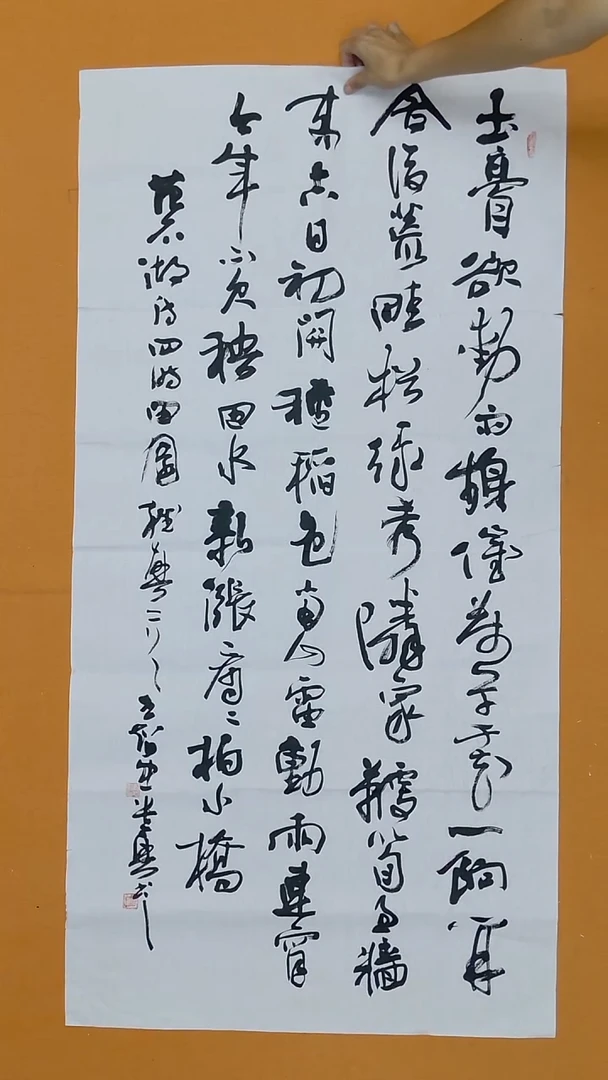 土膏欲動雨頻催萬草千花一餉開
舍後荒畦猶綠秀鄰家鞭筍過牆
來吉日初開種稻包南山雷動雨連宵
今年不欠秧田水新漲看看拍小橋
范石湖詩四時田園雜興二首